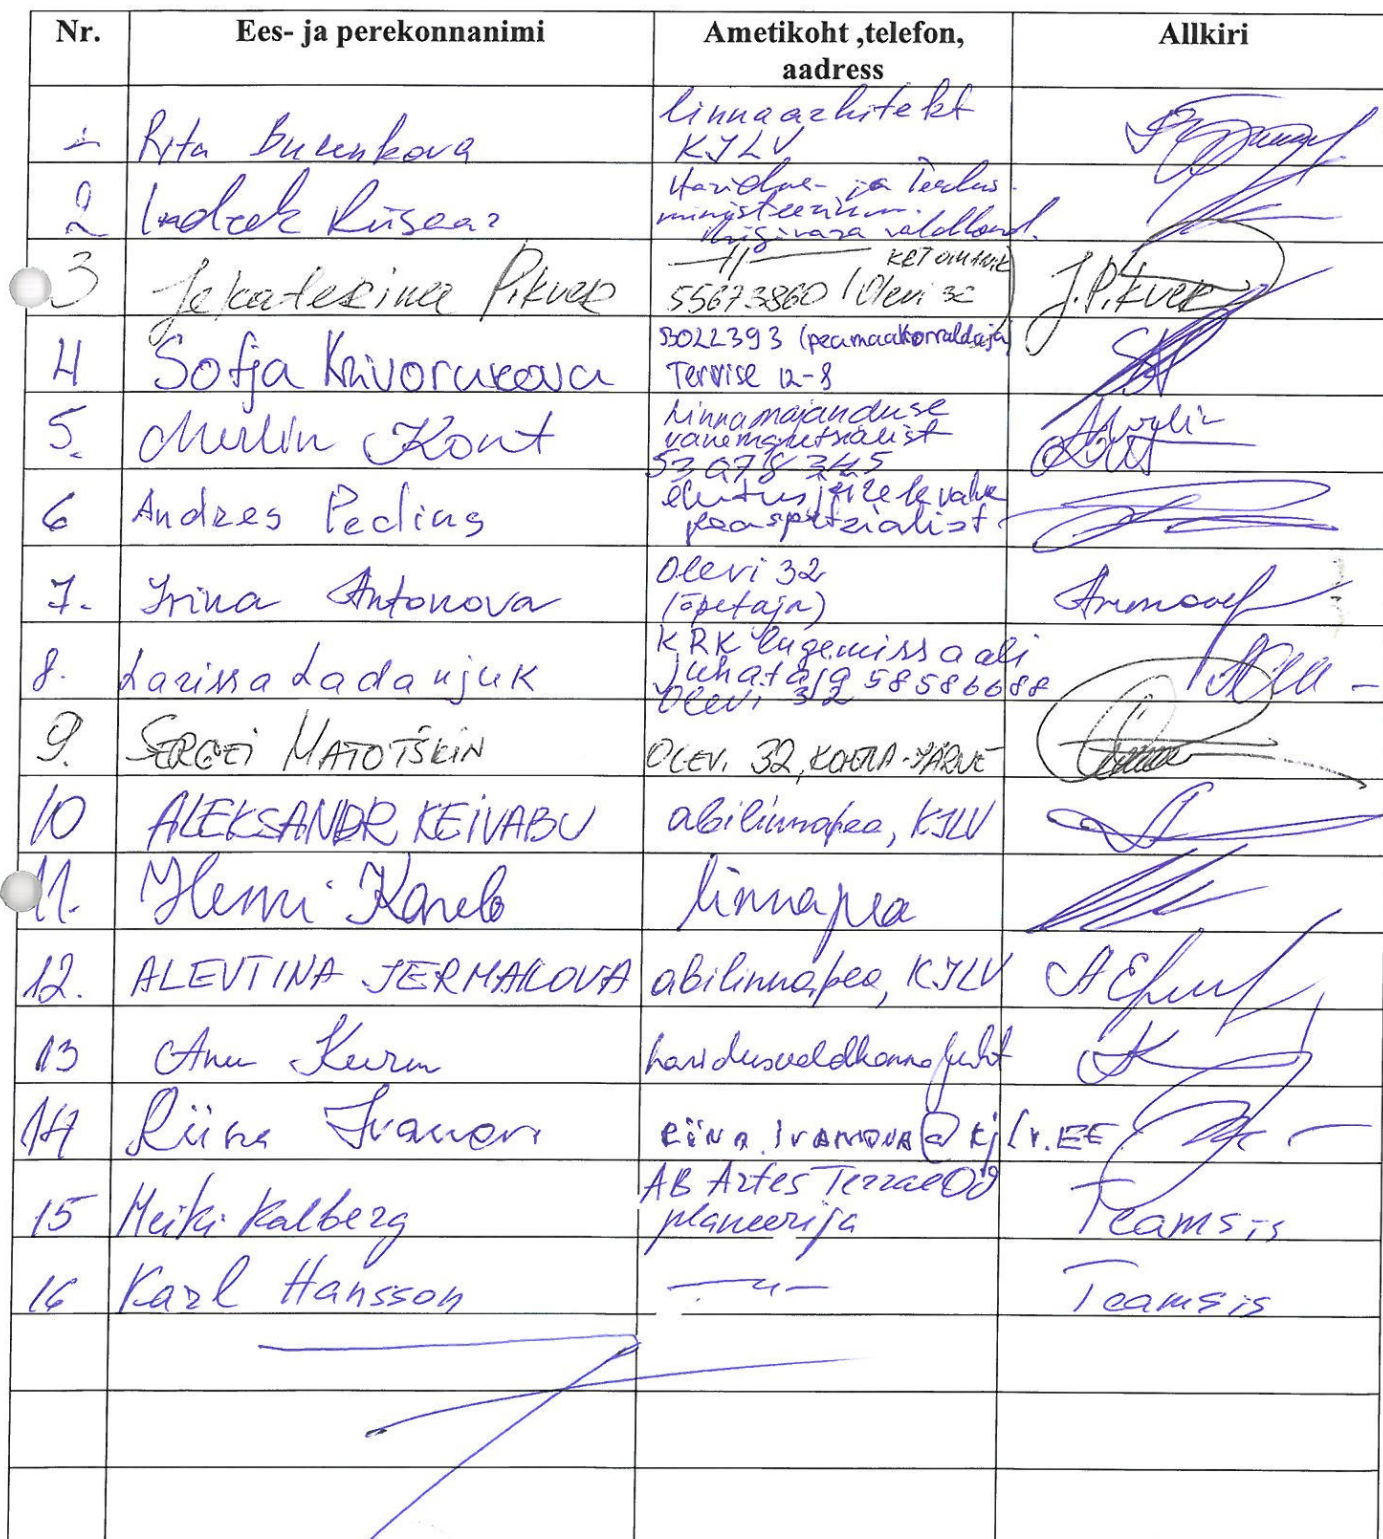 Nr. Ees- ja perekonnanimi Ametikoht ,telefon, aadress Allkiri
1 Rita linnaarhitekt
KJLV
2 Indrek Riisaar Haridus- ja Teadus-
ministeerium.
riigivara valdkond.
3 Jekaterina Pikver —11—
55673860 / Olevi 32 J.Pikver
4 Sofja Krivorukova (peamaakorraldaja)
Tervise 12-8
5. Merlin Kont Linnamajanduse
vanemspetsialist Merlin
53 078 345 Kont
6 Andres Pedius ehitusjärelevalve
peaspetsialist
7. Irina Antonova Olevi 32
(õpetaja)
8. Larissa Ladanjuk KRK lugemissaali
juhataja 58586688
Olevi 32
9. SERGEI MATOTŠKIN OLEVI 32, KOHTLA-JÄRVE
10 ALEKSANDR KEIVABU abilinnapea, KJLV
11. Henri Kaselo linnapea
12. ALEVTINA JERMAKOVA abilinnapea, KJLV
13 Anu haridusvaldkonna juht
14 Riina Ivanova RIINA.IVANOVA@KJLV.EE
15 Heiki Kalberg AB Artes Terrae OÜ
planeerija Teamsis
16 Karl Hansson —"— Teamsis